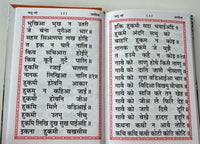 जपु जी
भुखिआ भुख न उतरी
जे बंना पुरीआ भार
सहस सिआणपा लख होहि
त इक न चलै नालि
किव सचिआरा होईऐ
किव कूड़ै तुटै पालि
हुकमि रजाई चलणा
नानक लिखिआ नालि
हुकमी होवनि आकार
हुकमु न कहिआ जाई
हुकमी होवनि जीअ
हुकमि मिलै वडिआई
हुकमी उतमु नीचु
हुकमि लिखि दुख सुख पाईअहि
इकना हुकमी बखसीस
जपु जी
इकि हुकमी सदा भवाईअहि
हुकमै अंदरि सभु को
बाहरि हुकम न कोइ
नानक हुकमै जे बुझै
त हउमै कहै न कोइ
गावै को ताणु होवै किसै ताणु
गावै को दाति जाणै नीसाणु
गावै को गुण वडिआईआ चार
गावै को विदिआ विखमु वीचारु
गावै को साजि करे तनु खेह
गावै को जीअ लै फिरि देह
गावै को जापै दिसै दूरि
गावै को वेखै हादरा हदूरि
कथना कथी न आवै तोटि
कथि कथि कथी कोटी कोटि कोटि